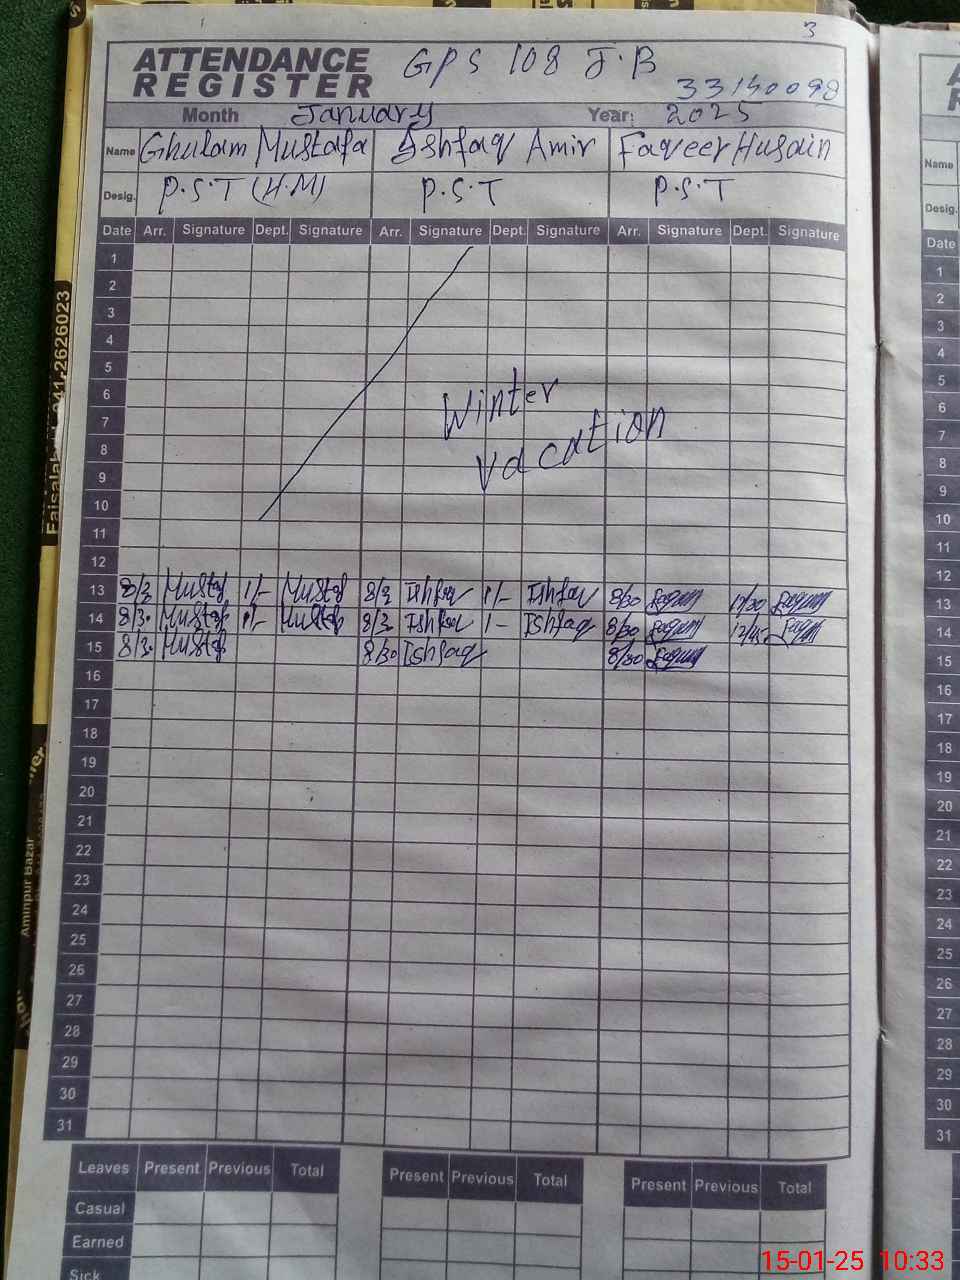 3
ATTENDANCE REGISTER
GPS 108 J.B
33140098
Month January Year: 2025
Name Ghulam Mustafa Ishfaq Amir Faqeer Husain
Desig. P.S.T (H.M) P.S.T P.S.T
Date Arr. Signature Dept. Signature Arr. Signature Dept. Signature Arr. Signature Dept. Signature
1
2
3
4
5
6
7
8
9
10
11
12
Winter
vacation
13 8/3 Mustaf 1/- Mustaf 8/3 Ishfaq 1/- Ishfaq 8/30 13
14 8/3. Mustaf 1/- Mustaf 8/3 Ishfaq 1- Ishfaq 8/30 12/45 14
15 8/3. Mustaf 8/30 Ishfaq 8/30 15
16
17
18
19
20
21
22
23
24
25
26
27
28
29
30
31
Leaves Present Previous Total Present Previous Total Present Previous Total
Casual
Earned
Sick
Name
Desig.
Date
1
2
3
4
5
6
7
8
9
10
11
12
13
14
15
16
17
18
19
20
21
22
23
24
25
26
27
28
29
30
31
Aminpur Bazar
15-01-25 10:33